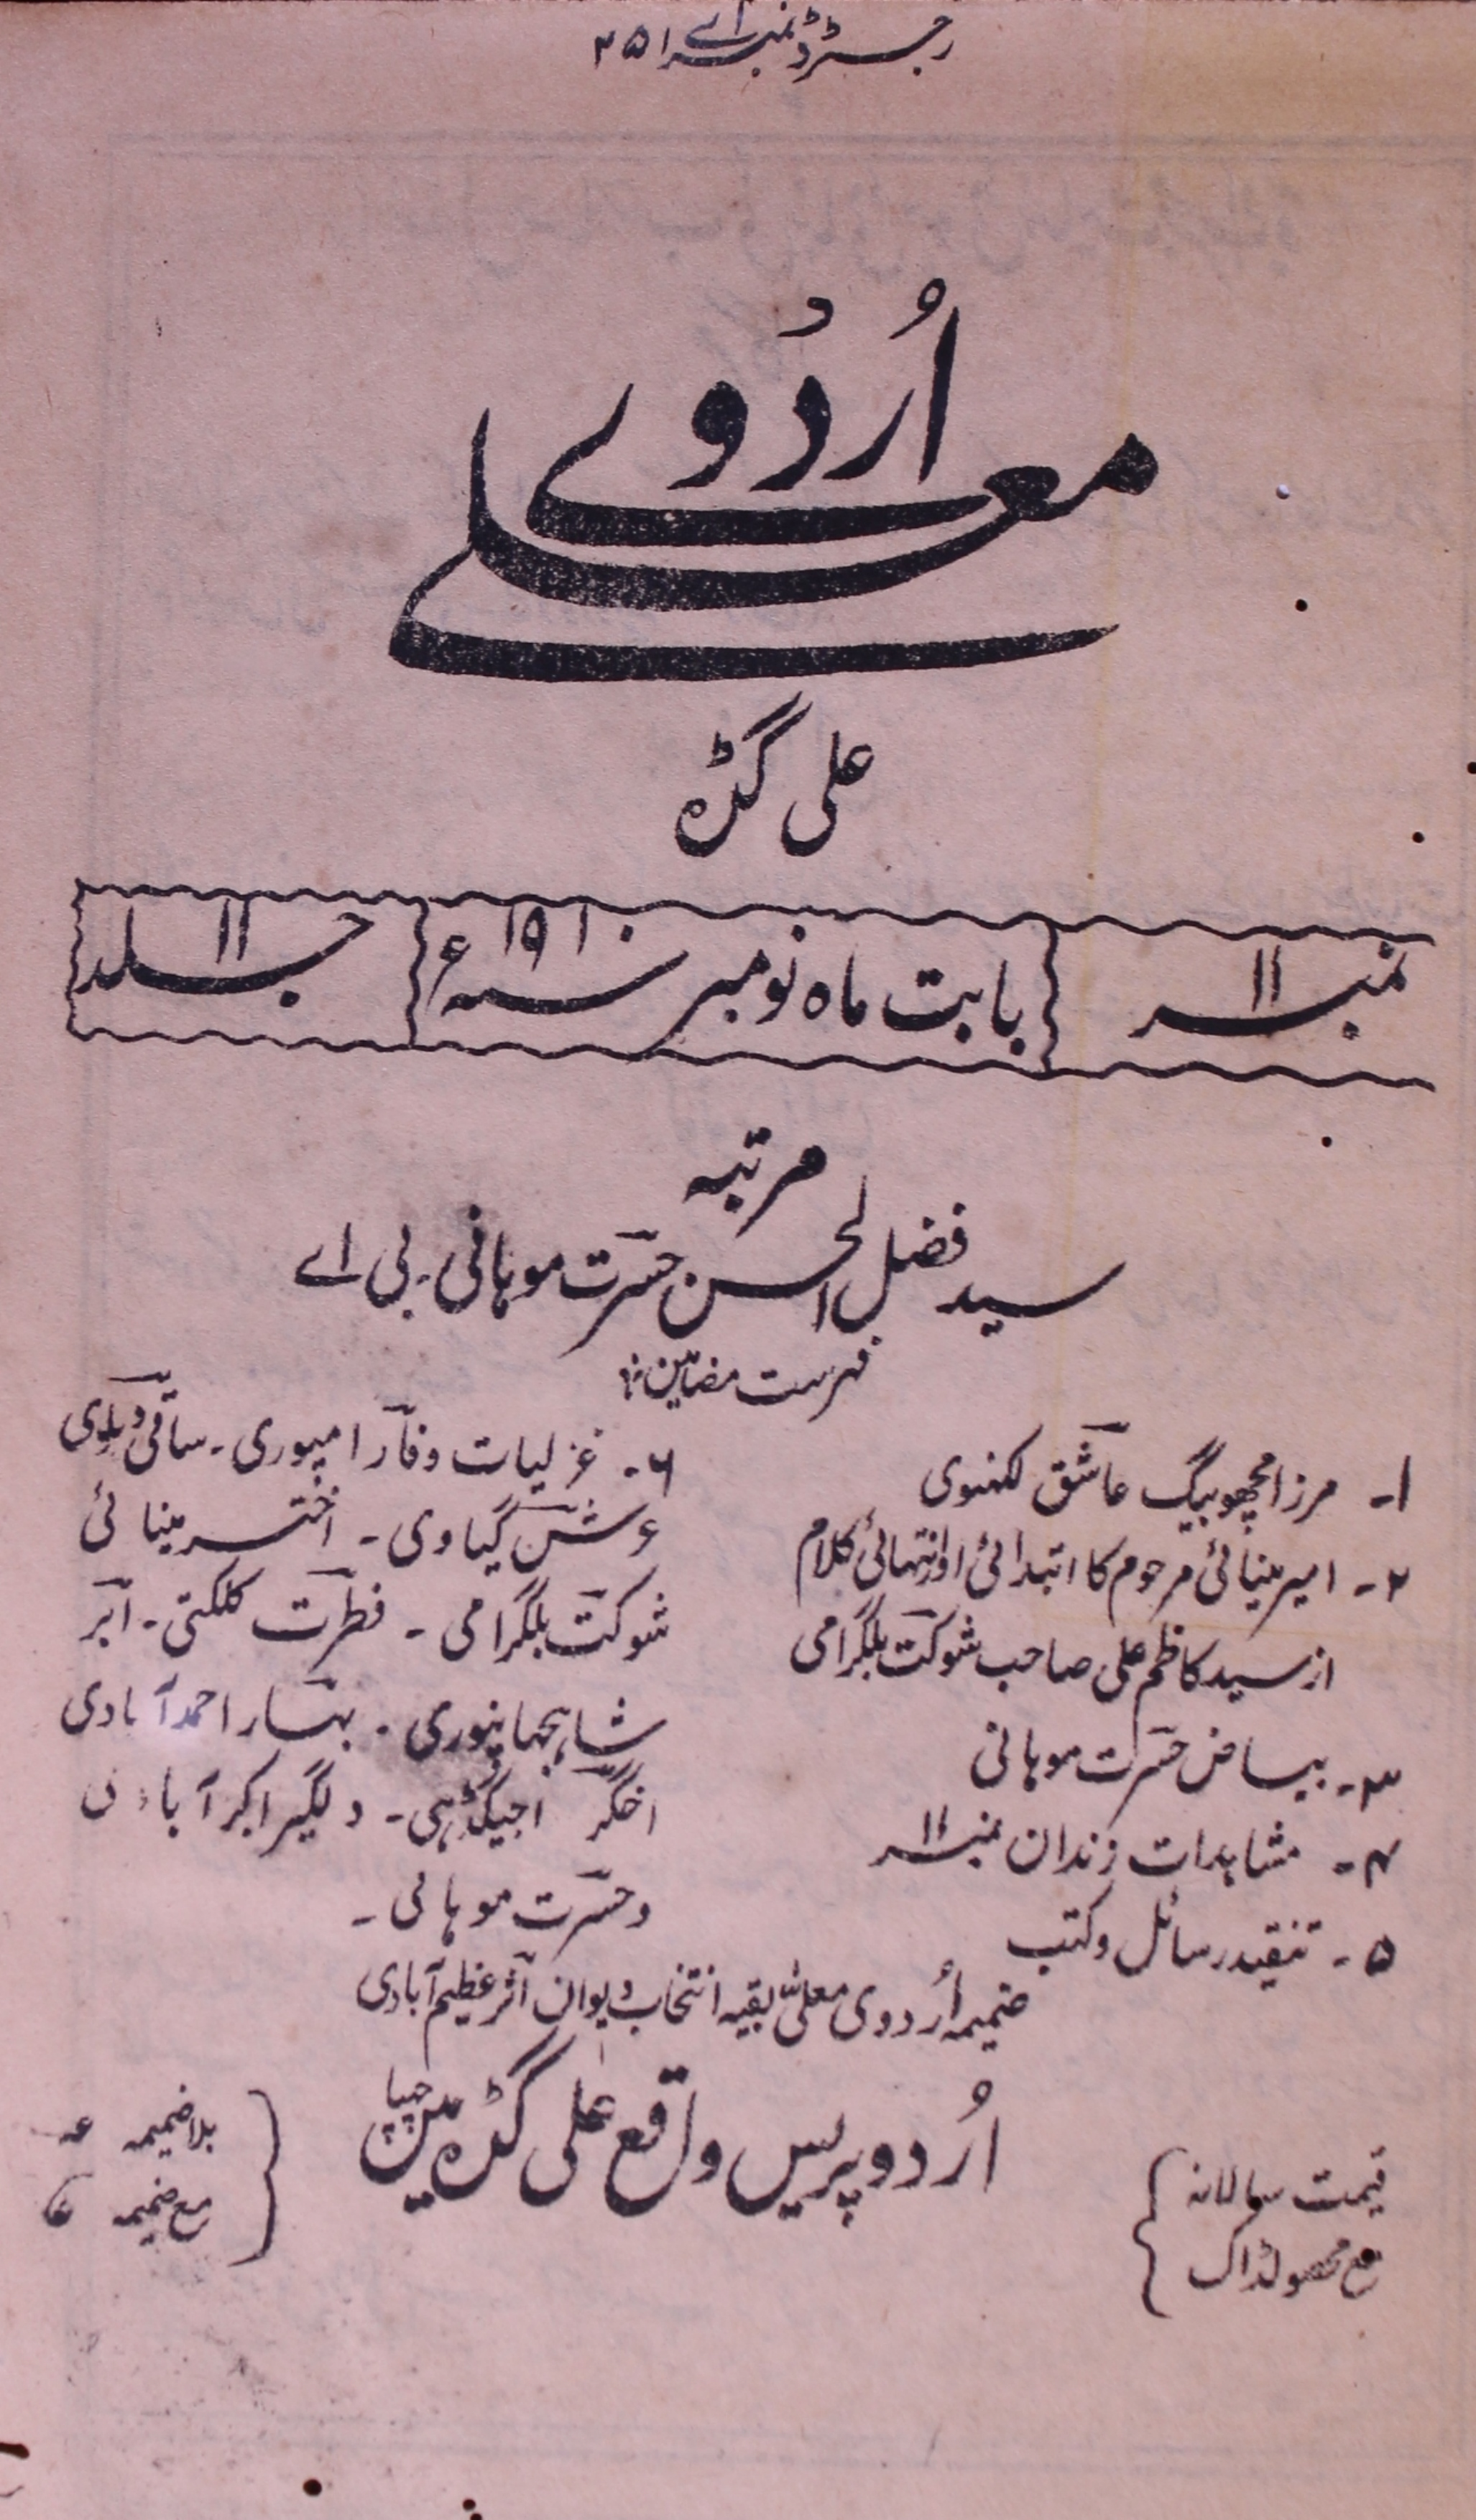 رجسٹرڈ نمبر اے ۲۵۱
اُردُوے
معلےٰ
علی گڑہ
نمبر ۱۱
بابت ماہ نومبر سنہ ۱۹۱۰ء
جلد ۱۱
مرتبہ
سید فضل الحسن حسرت موہانی - بی اے
فہرست مضامین
۱- مرزا مچھو بیگ عاشق لکھنوی
۲- امیر مینائی مرحوم کا ابتدائی اور انتہائی کلام
از سید کاظم علی صاحب شوکت بلگرامی
۳- بیاض حسرت موہانی
۴- مشاہدات زندان نمبر ۱۱
۵- تنقید رسائل و کتب
۶- غزلیات وفا رامپوری - ساقی دہلوی
عرش گیاوی - اختر مینائی
شوکت بلگرامی - فطرت کلکتی - ابر
شاہجہانپوری - بہار احمد آبادی
اخگر اجیگڑہی - دلگیر اکبر آبادی
و حسرت موہانی -
ضمیمہ اُردوی معلیٰ بقیہ انتخاب دیوان اثر عظیم آبادی
اُردو پریس واقع علی گڑہ میں چھپا
قیمت سالانہ
مع محصولڈاک
بلا ضمیمہ
مع ضمیمہ